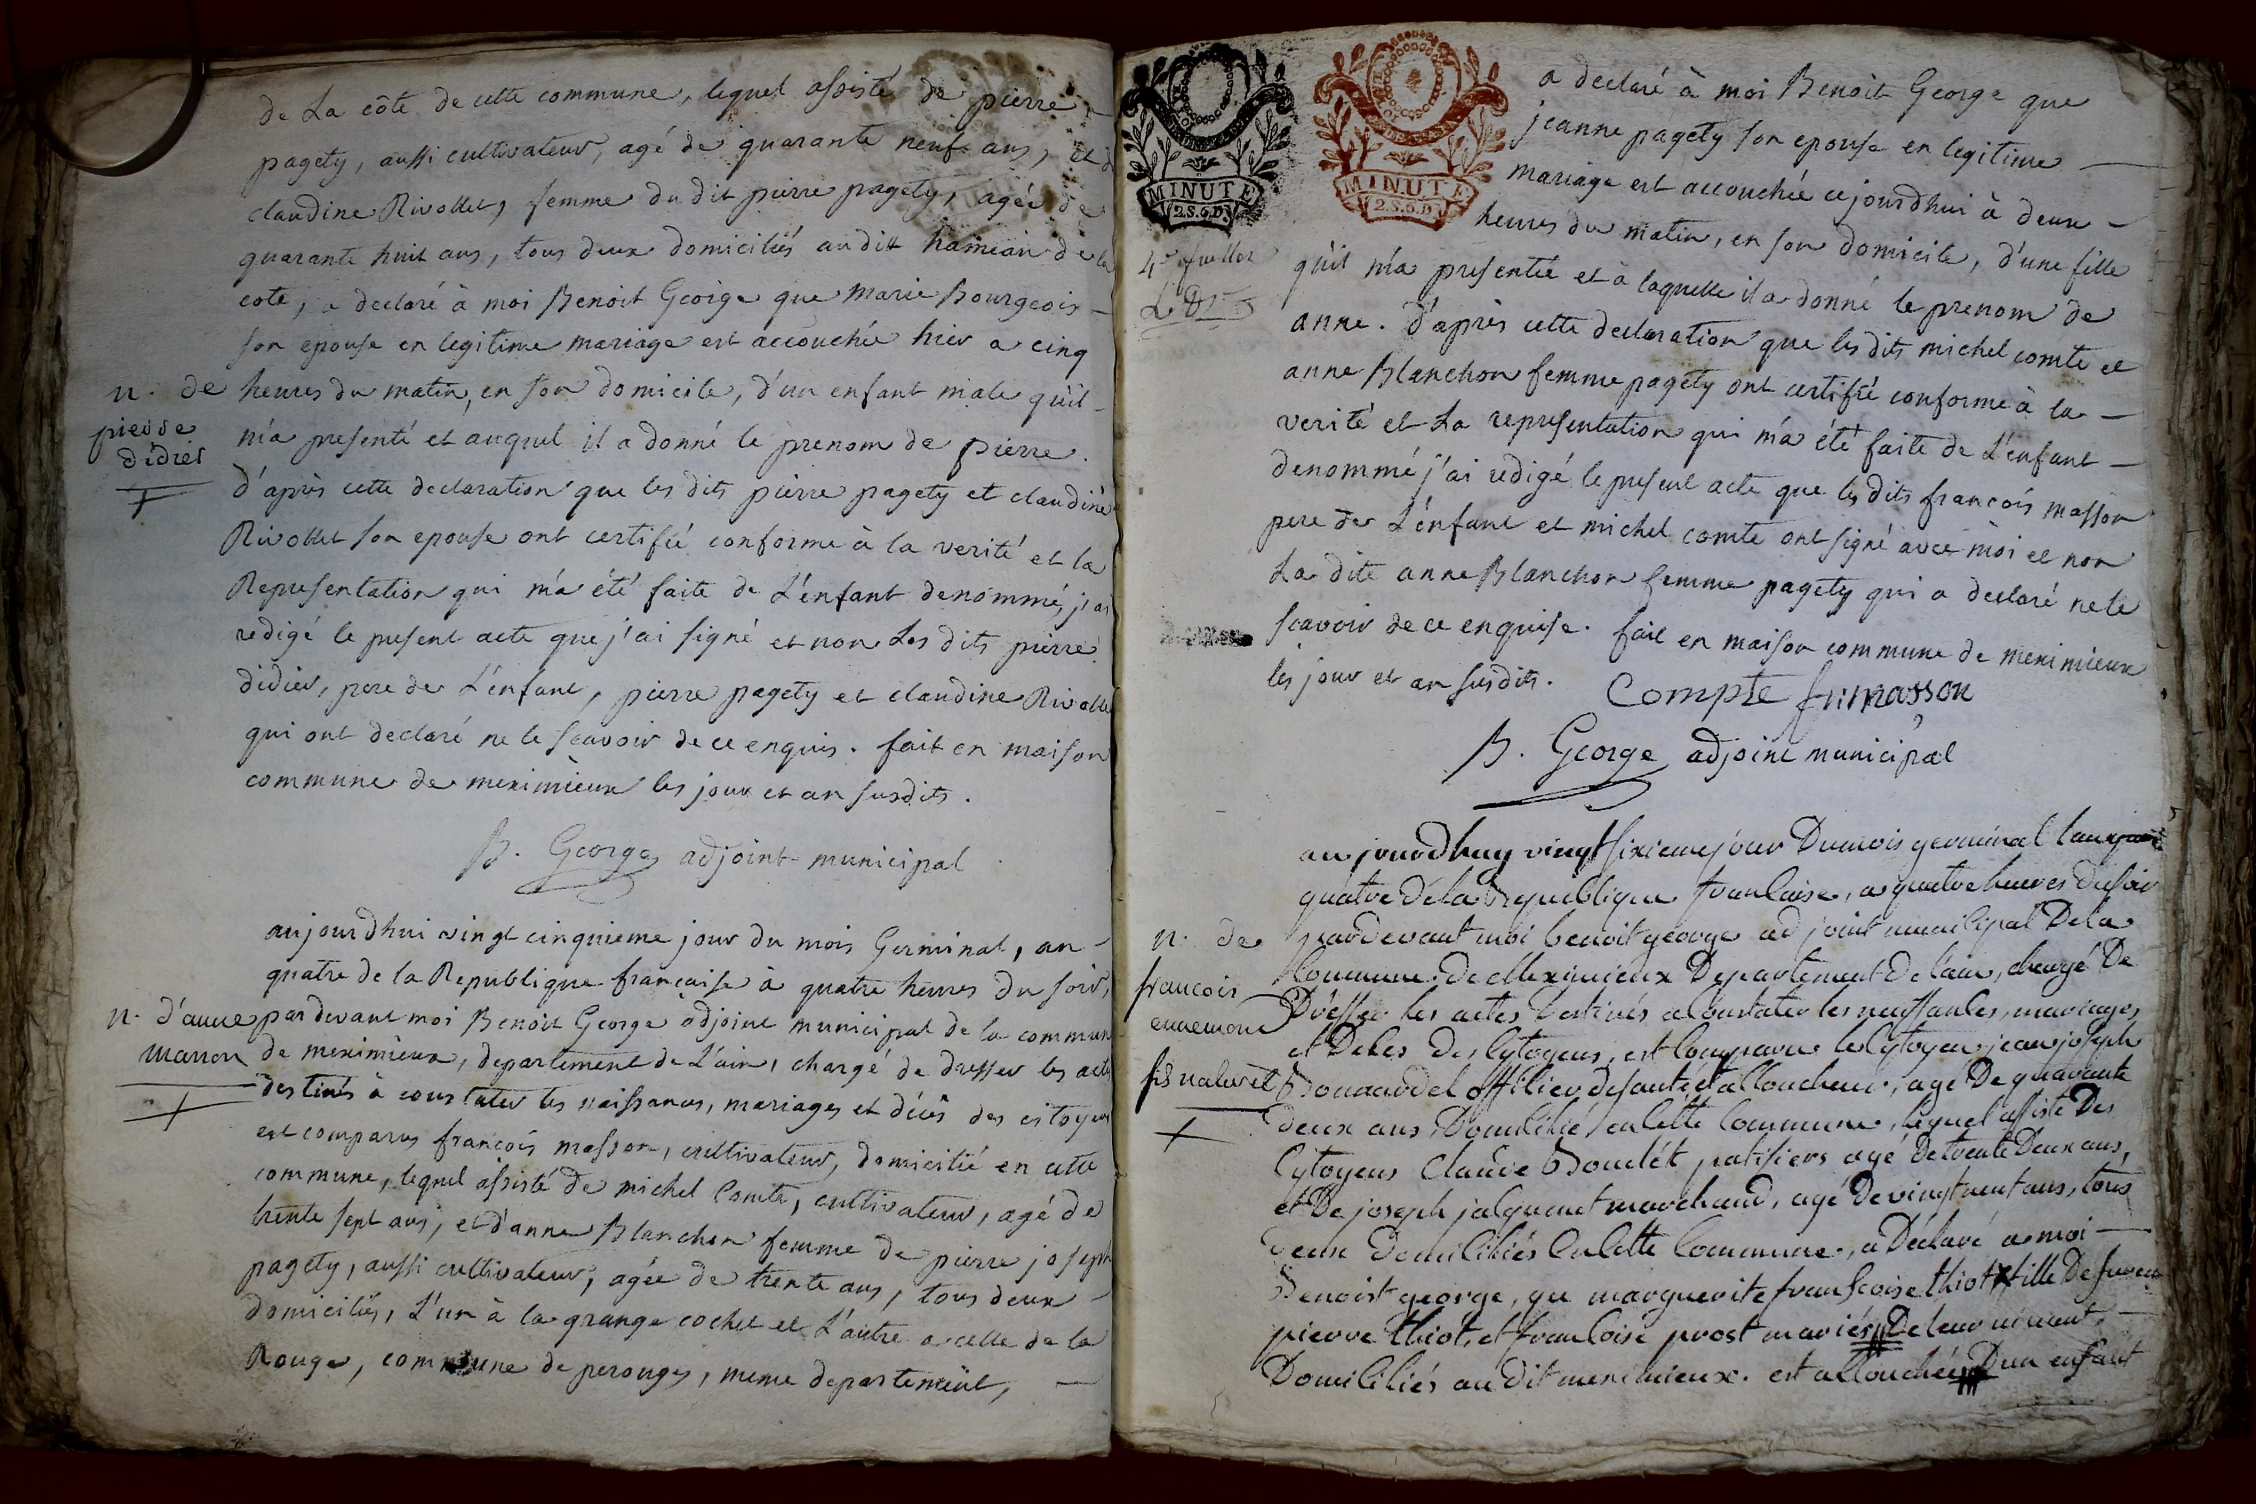 de La côte de cette commune, lequel assisté de pierre
pagety, aussi cultivateur, agé de quarante neuf ans, et de
claudine Rivollet, femme du dit pierre pagety, agée de
quarante huit ans, tous deux domiciliés audit hameau de la
cote, a declaré à moi Benoit George que marie Bourgeois
son epouse en legitime mariage est accouchée hier a cinq
n. de
pierre
didier
heures du matin, en son domicile, d'un enfant male qu'il
m'a presenté et auquel il a donné le prenom de pierre.
d'après cette declaration que les dits pierre pagety et claudine
Rivollet son epouse ont certifié conforme à la verité et la
Representation qui m'a été faite de L'enfant denommé, j'ai
redigé le present acte que j'ai signé et non Les dits pierre
didier, pere de L'enfant, pierre pagety et claudine Rivollet
qui ont declaré ne le scavoir de ce enquis. fait en maison
commune de meximieux les jour et an susdits.
B. George adjoint municipal
aujourdhui vingt cinquieme jour du mois Germinal, an
quatre de la Republique française à quatre heures du soir,
n. d'anne
masson
pardevant moi Benoit George adjoint municipal de la commune
de meximieux, departement de L'ain, chargé de dresser les actes
destinés à constater les naissances, mariages et décès des citoyens
est comparus francois masson, cultivateur, domicilié en cette
commune, lequel assisté de michel Comte, cultivateur, agé de
trente sept ans, et d'anne Blanchon femme de pierre joseph
pagety, aussi cultivateur, agée de trente ans, tous deux
domiciliés, L'un à la grange cochet et L'autre a celle de la
Rouge, commune de perouges, meme departement,
MINUTE
2.S.6.D.
MINUTE
2.S.6.D.
a declaré à moi Benoit George que
jeanne pagety son epouse en legitime
mariage est accouchée cejourdhui à deux
heures du matin, en son domicile, d'une fille
qu'il m'a presentée et à laquelle il a donné le prenom de
anne. d'après cette declaration que les dits michel comte et
anne Blanchon femme pagety ont certifié conforme à la
verité et La representation qui m'a été faite de L'enfant
denommé j'ai redigé le present acte que les dits francois masson
pere de L'enfant et michel comte ont signé avec moi et non
La dite anne Blanchon femme pagety qui a declaré ne le
scavoir de ce enquise. fait en maison commune de meximieux
les jour et an susdits.
Compte fr: masson
B. George adjoint municipal
aujourdhuy vingt sixieme jour Dumois germinal
quatre de la Republique francaise, a quatre heures du soir
n. de
francois
ennemond
fils naturel
pardevant moi benoit george adjoint municipal De la
Commune de Meximieux Departement De lain, chargé De
Dresser les actes Destinés a Constater les naissances, mariages
et Deces des Cytoyens, est Comparu le Cytoyen jean joseph
officier de santé et accoucheur, agé De quarante
deux ans Domicilié en Cette Commune, lequel assisté Des
Cytoyens Claude patissiers agé De trente Deux ans,
et De joseph jacquemet marchand, agé De vingt neuf ans, tous
Deux Domiciliés En Cette Commune, a Déclaré a moi
Benoist george, que marguerite francoise thiot fille De
pierre thiot, et francoise prost mariés De leur vivant
Domiciliés au Dit meximieux. est accouchée D'un enfant